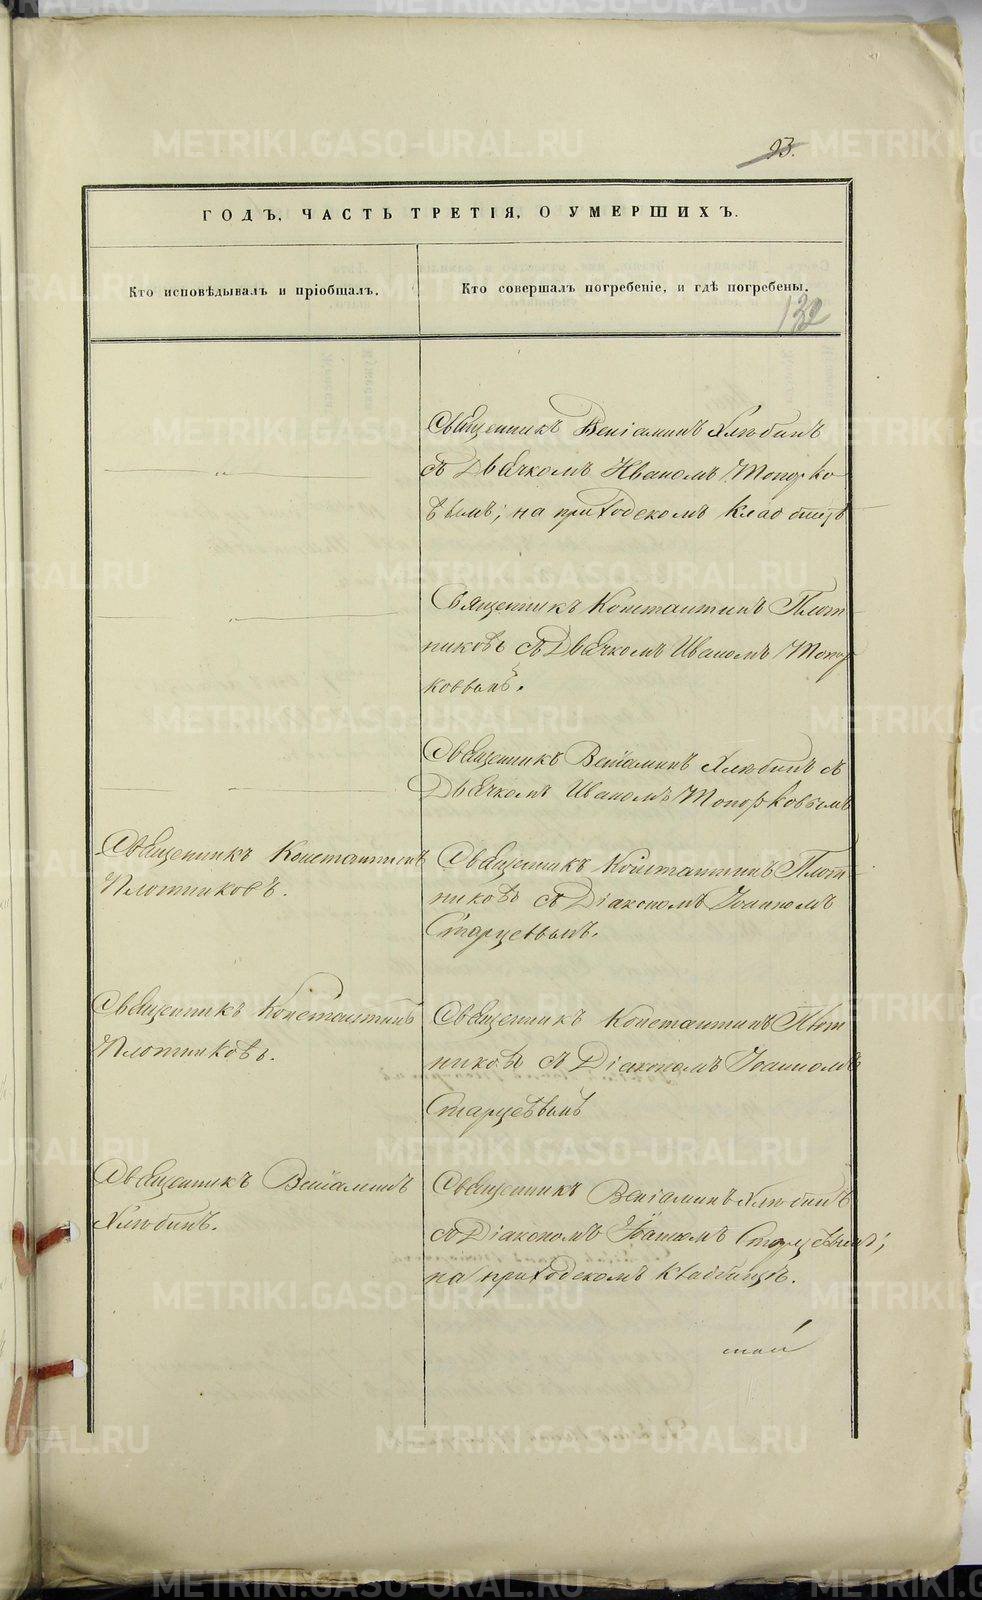 93.
ГОДЪ, ЧАСТЬ ТРЕТІЯ, О УМЕРШИХЪ.
Кто исповѣдывалъ и пріобщалъ.
Кто совершалъ погребеніе, и гдѣ погребены.
132
Священникъ Веніаминъ Хлѣбинъ
съ Дьячкомъ Иваномъ Топорко
вымъ; на приходскомъ кладбищѣ
Священникъ Константинъ Плот
никовъ съ Дьячкомъ Иваномъ Топор
ковымъ.
Священникъ Веніаминъ Хлѣбинъ съ
Дьячкомъ Иваномъ Топорковымъ
Священникъ Константинъ
Плотниковъ.
Священникъ Константинъ Плот
никовъ съ Діакономъ Іоанномъ
Старцевымъ.
Священникъ Константинъ
Плотниковъ.
Священникъ Константинъ Плот
никовъ съ Діакономъ Іоанномъ
Старцевымъ
Священникъ Веніаминъ
Хлѣбинъ.
Священникъ Веніаминъ Хлѣбинъ
съ Діакономъ Іоанномъ Старцевымъ;
на приходскомъ кладбищѣ.
METRIKI.GASO-URAL.RU